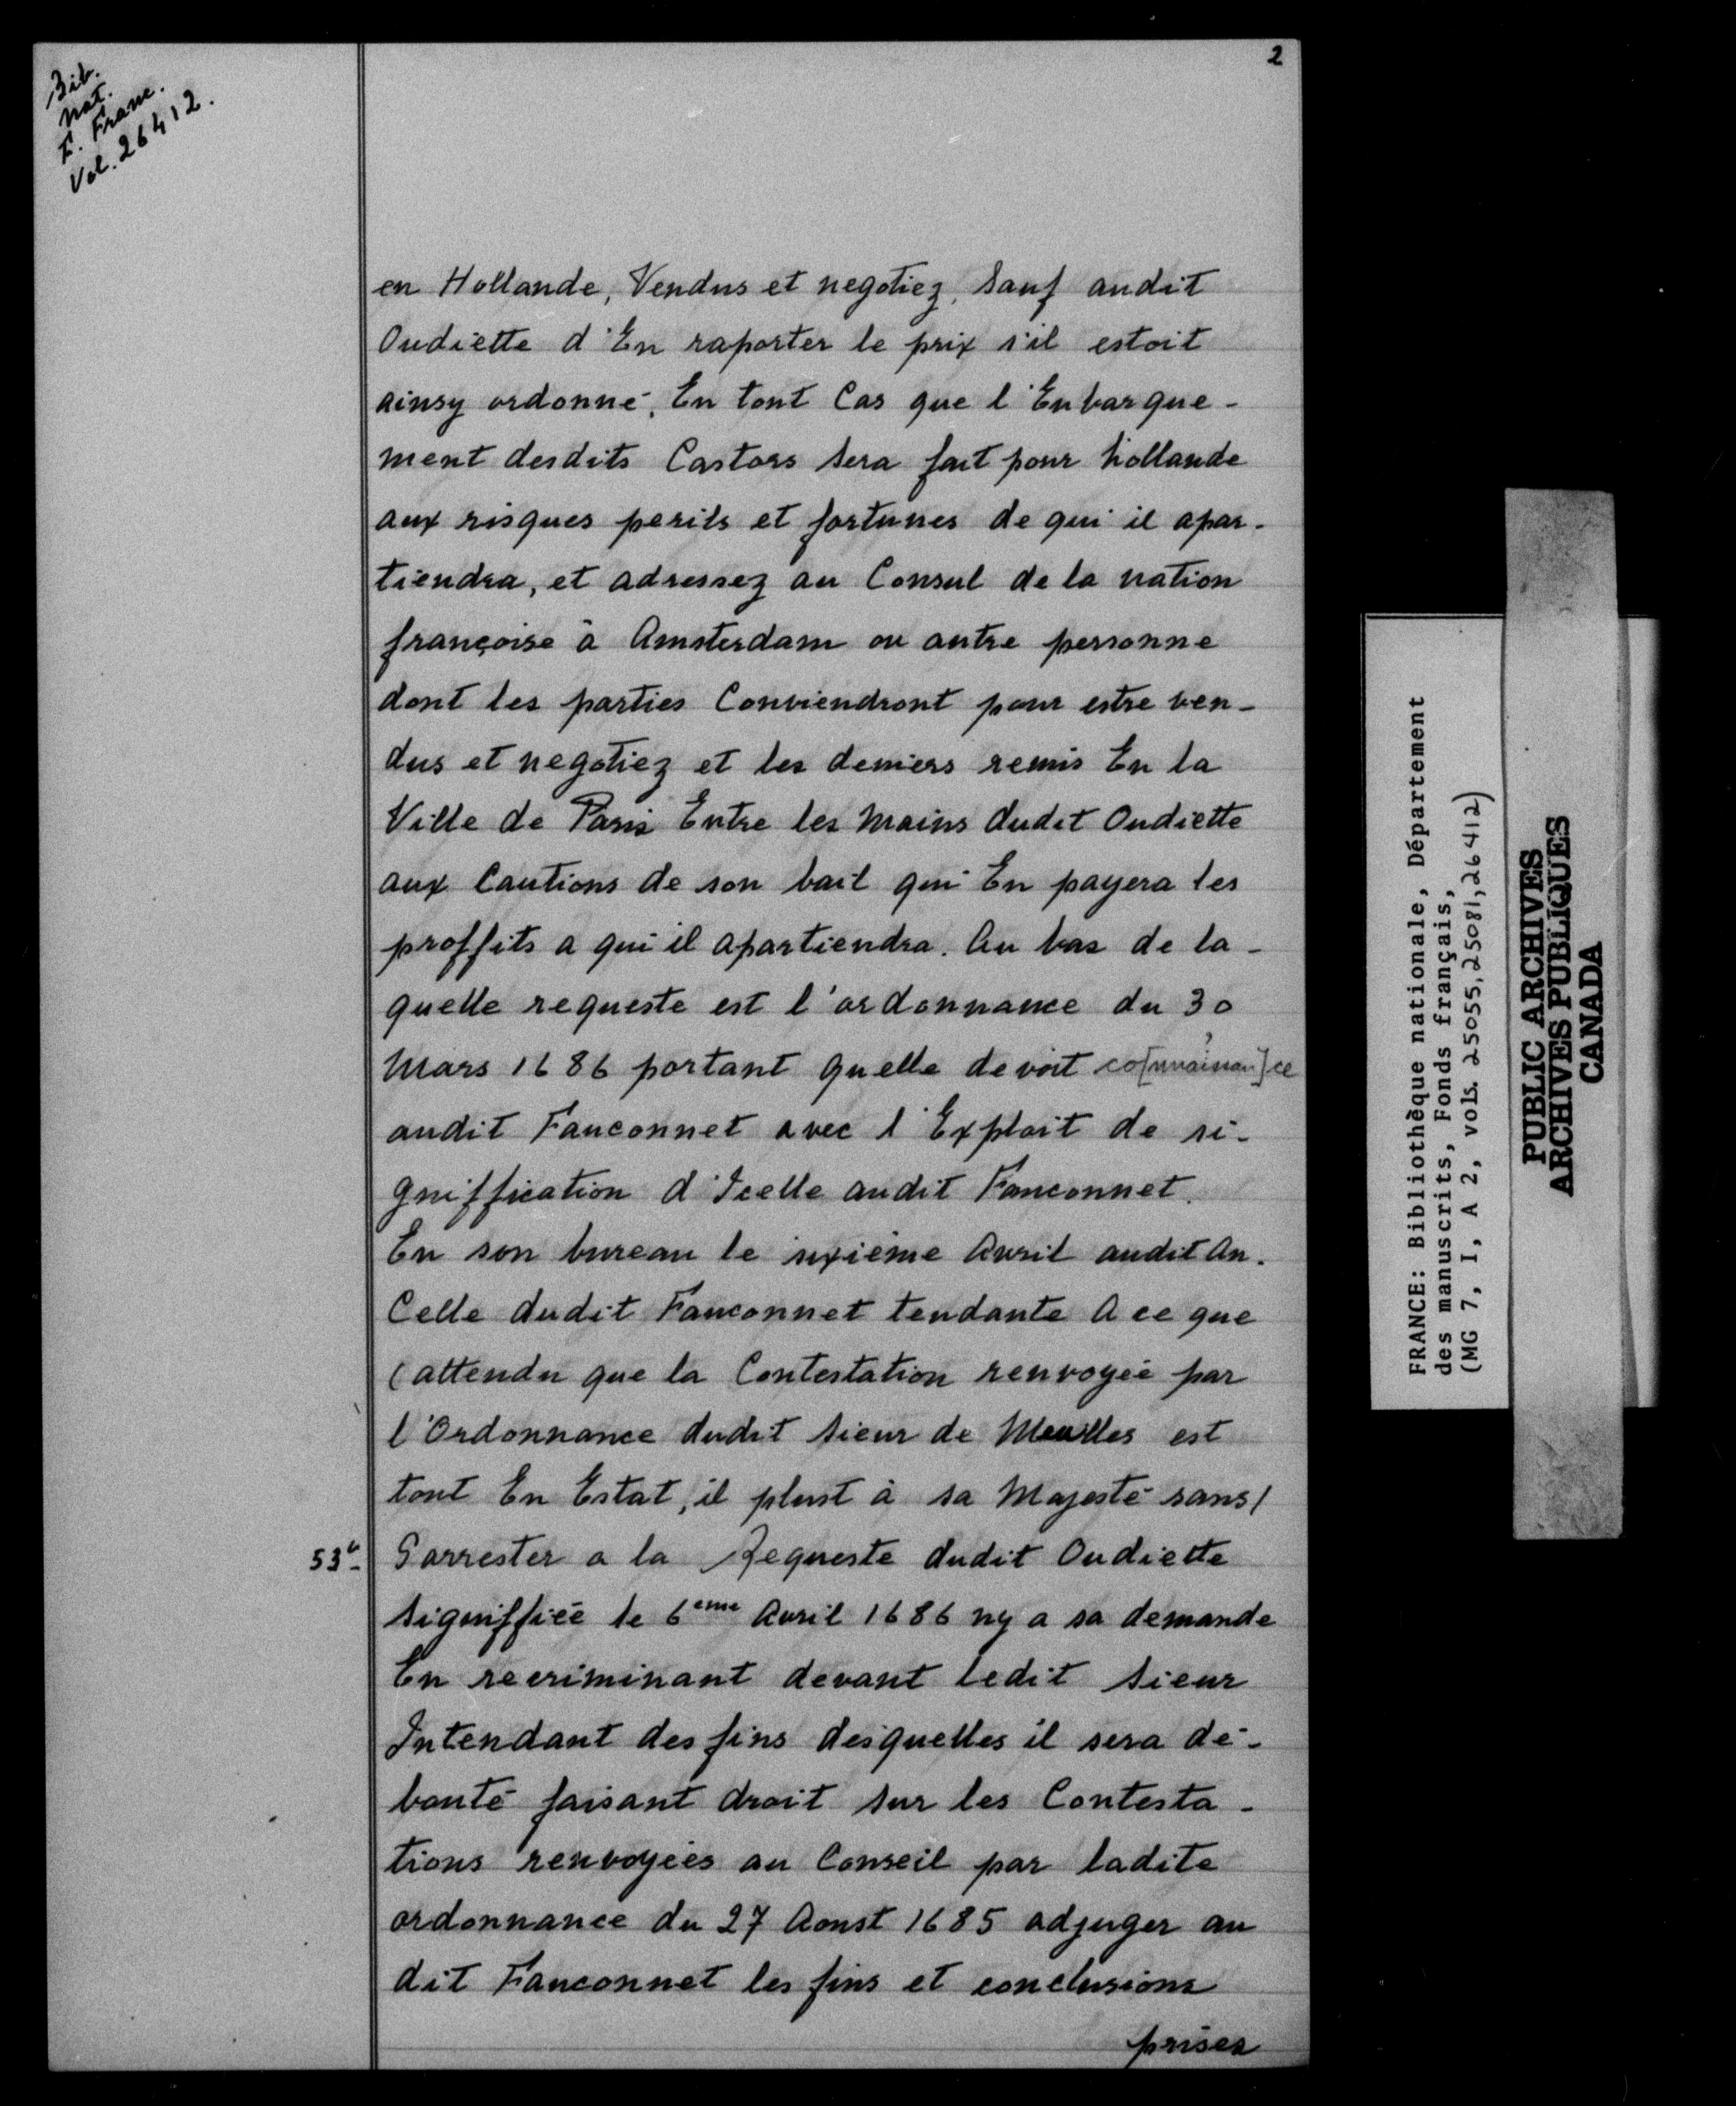 2
Bib.
Nat.
F. Franc.
Vol. 26412.
en Hollande, Vendus et negotiez, sauf audit
Oudiette d'En raporter le prix s'il estoit
ainsy ordonné. En tout Cas que l'Enbarque-
ment desdits Castors sera fait pour hollande
aux risques perils et fortunes de qui il apar-
tiendra, et adressez au Consul de la nation
françoise à Amsterdam ou autre personne
dont les parties Conviendront pour estre ven-
dus et negotiez et les deniers remis En la
Ville de Paris Entre les mains dudit Oudiette
aux Cautions de son bail qui En payera les
proffits a qui il apartiendra. Au bas de la-
quelle requeste est l'ordonnance du 30
Mars 1686 portant quelle devoit co[nnaissan]ce
audit Fauconnet avec l'Exploit de si-
gniffication d'Icelle audit Fauconnet.
En son bureau le sixième Avril audit An.
Celle dudit Fauconnet tendante A ce que
(attendu que la Contestation renvoyée par
l'Ordonnance dudit sieur de Meulles est
tout En Estat, il plust à sa Majesté sans/
53v Sarrester a la Requeste dudit Oudiette
signiffiée le 6ème Avril 1686 ny a sa demande
En recriminant devant ledit sieur
Intendant des fins desquelles il sera dé-
bouté faisant droit sur les Contesta-
tions renvoyées au Conseil par ladite
ordonnance du 27 Aoust 1685 adjuger au
dit Fauconnet les fins et conclusions
prises
FRANCE: Bibliothèque nationale, Département
des manuscrits, Fonds français,
(MG 7, I, A 2, vols. 25055, 25081, 26412)
PUBLIC ARCHIVES
ARCHIVES PUBLIQUES
CANADA